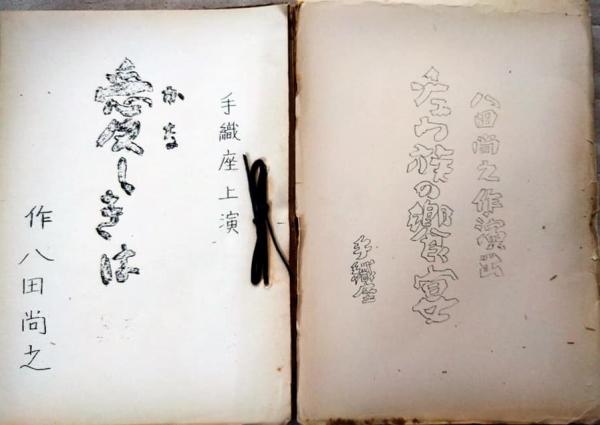 手織座上演
かな
愛しきは
作 八田尚之
八田尚之作演出
族の饗宴
手織座